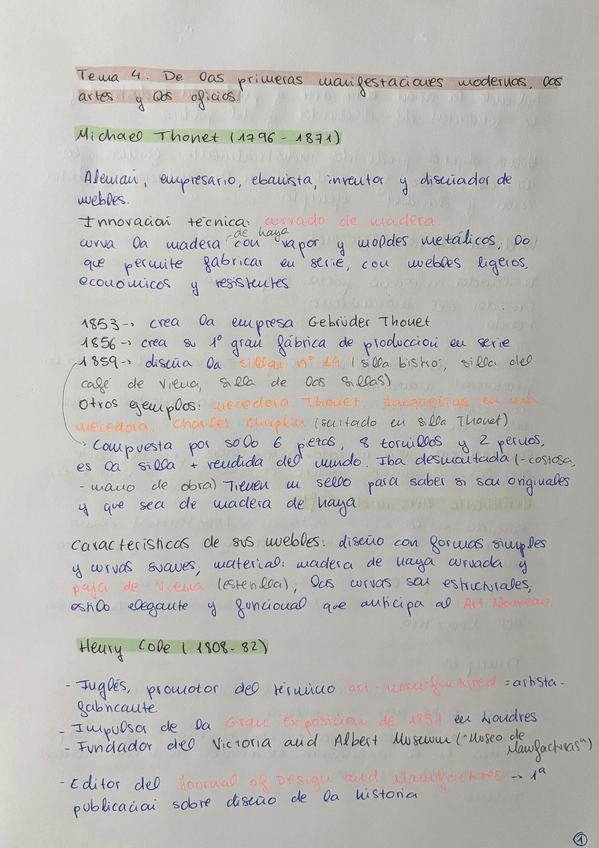 Tema 4. De las primeras manifestaciones modernas, las
artes y los oficios.
Michael Thonet (1796 - 1871)
Alemán, empresario, ebanista, inventor y diseñador de
muebles.
Innovación técnica: curvado de madera
curva la madera de haya con vapor y moldes metálicos, lo
que permite fabricar en serie, con muebles ligeros,
económicos y resistentes
1853 -> crea la empresa Gebrüder Thonet
1856 -> crea su 1º gran fábrica de producción en serie
1859 -> diseña la sillas nº 14 (silla bistró, silla del
café de Viena, silla de las sillas)
Otros ejemplos: mecedora Thonet, Jacqueline en una
mecedora, Charles Chaplin (sentado en silla Thonet)
-> Compuesta por solo 6 piezas, 8 tornillos y 2 pernos,
es la silla + vendida del mundo. Iba desmontada (- costosa,
- mano de obra) Tienen un sello para saber si son originales
y que sea de madera de haya
Características de sus muebles: diseño con formas simples
y curvas suaves, material: madera de haya curvada y
paja de Viena (esterilla), las curvas son estructurales,
estilo elegante y funcional que anticipa al Art Nouveau.
Henry Cole (1808 - 82)
- Inglés, promotor del término art-manufactured = artista-
fabricante
- Impulsor de la Gran Exposición de 1851 en Londres
- Fundador del Victoria and Albert Museum ("Museo de
Manufacturas")
- Editor del Journal of Design and Manufactures -> 1ª
publicación sobre diseño de la historia
1